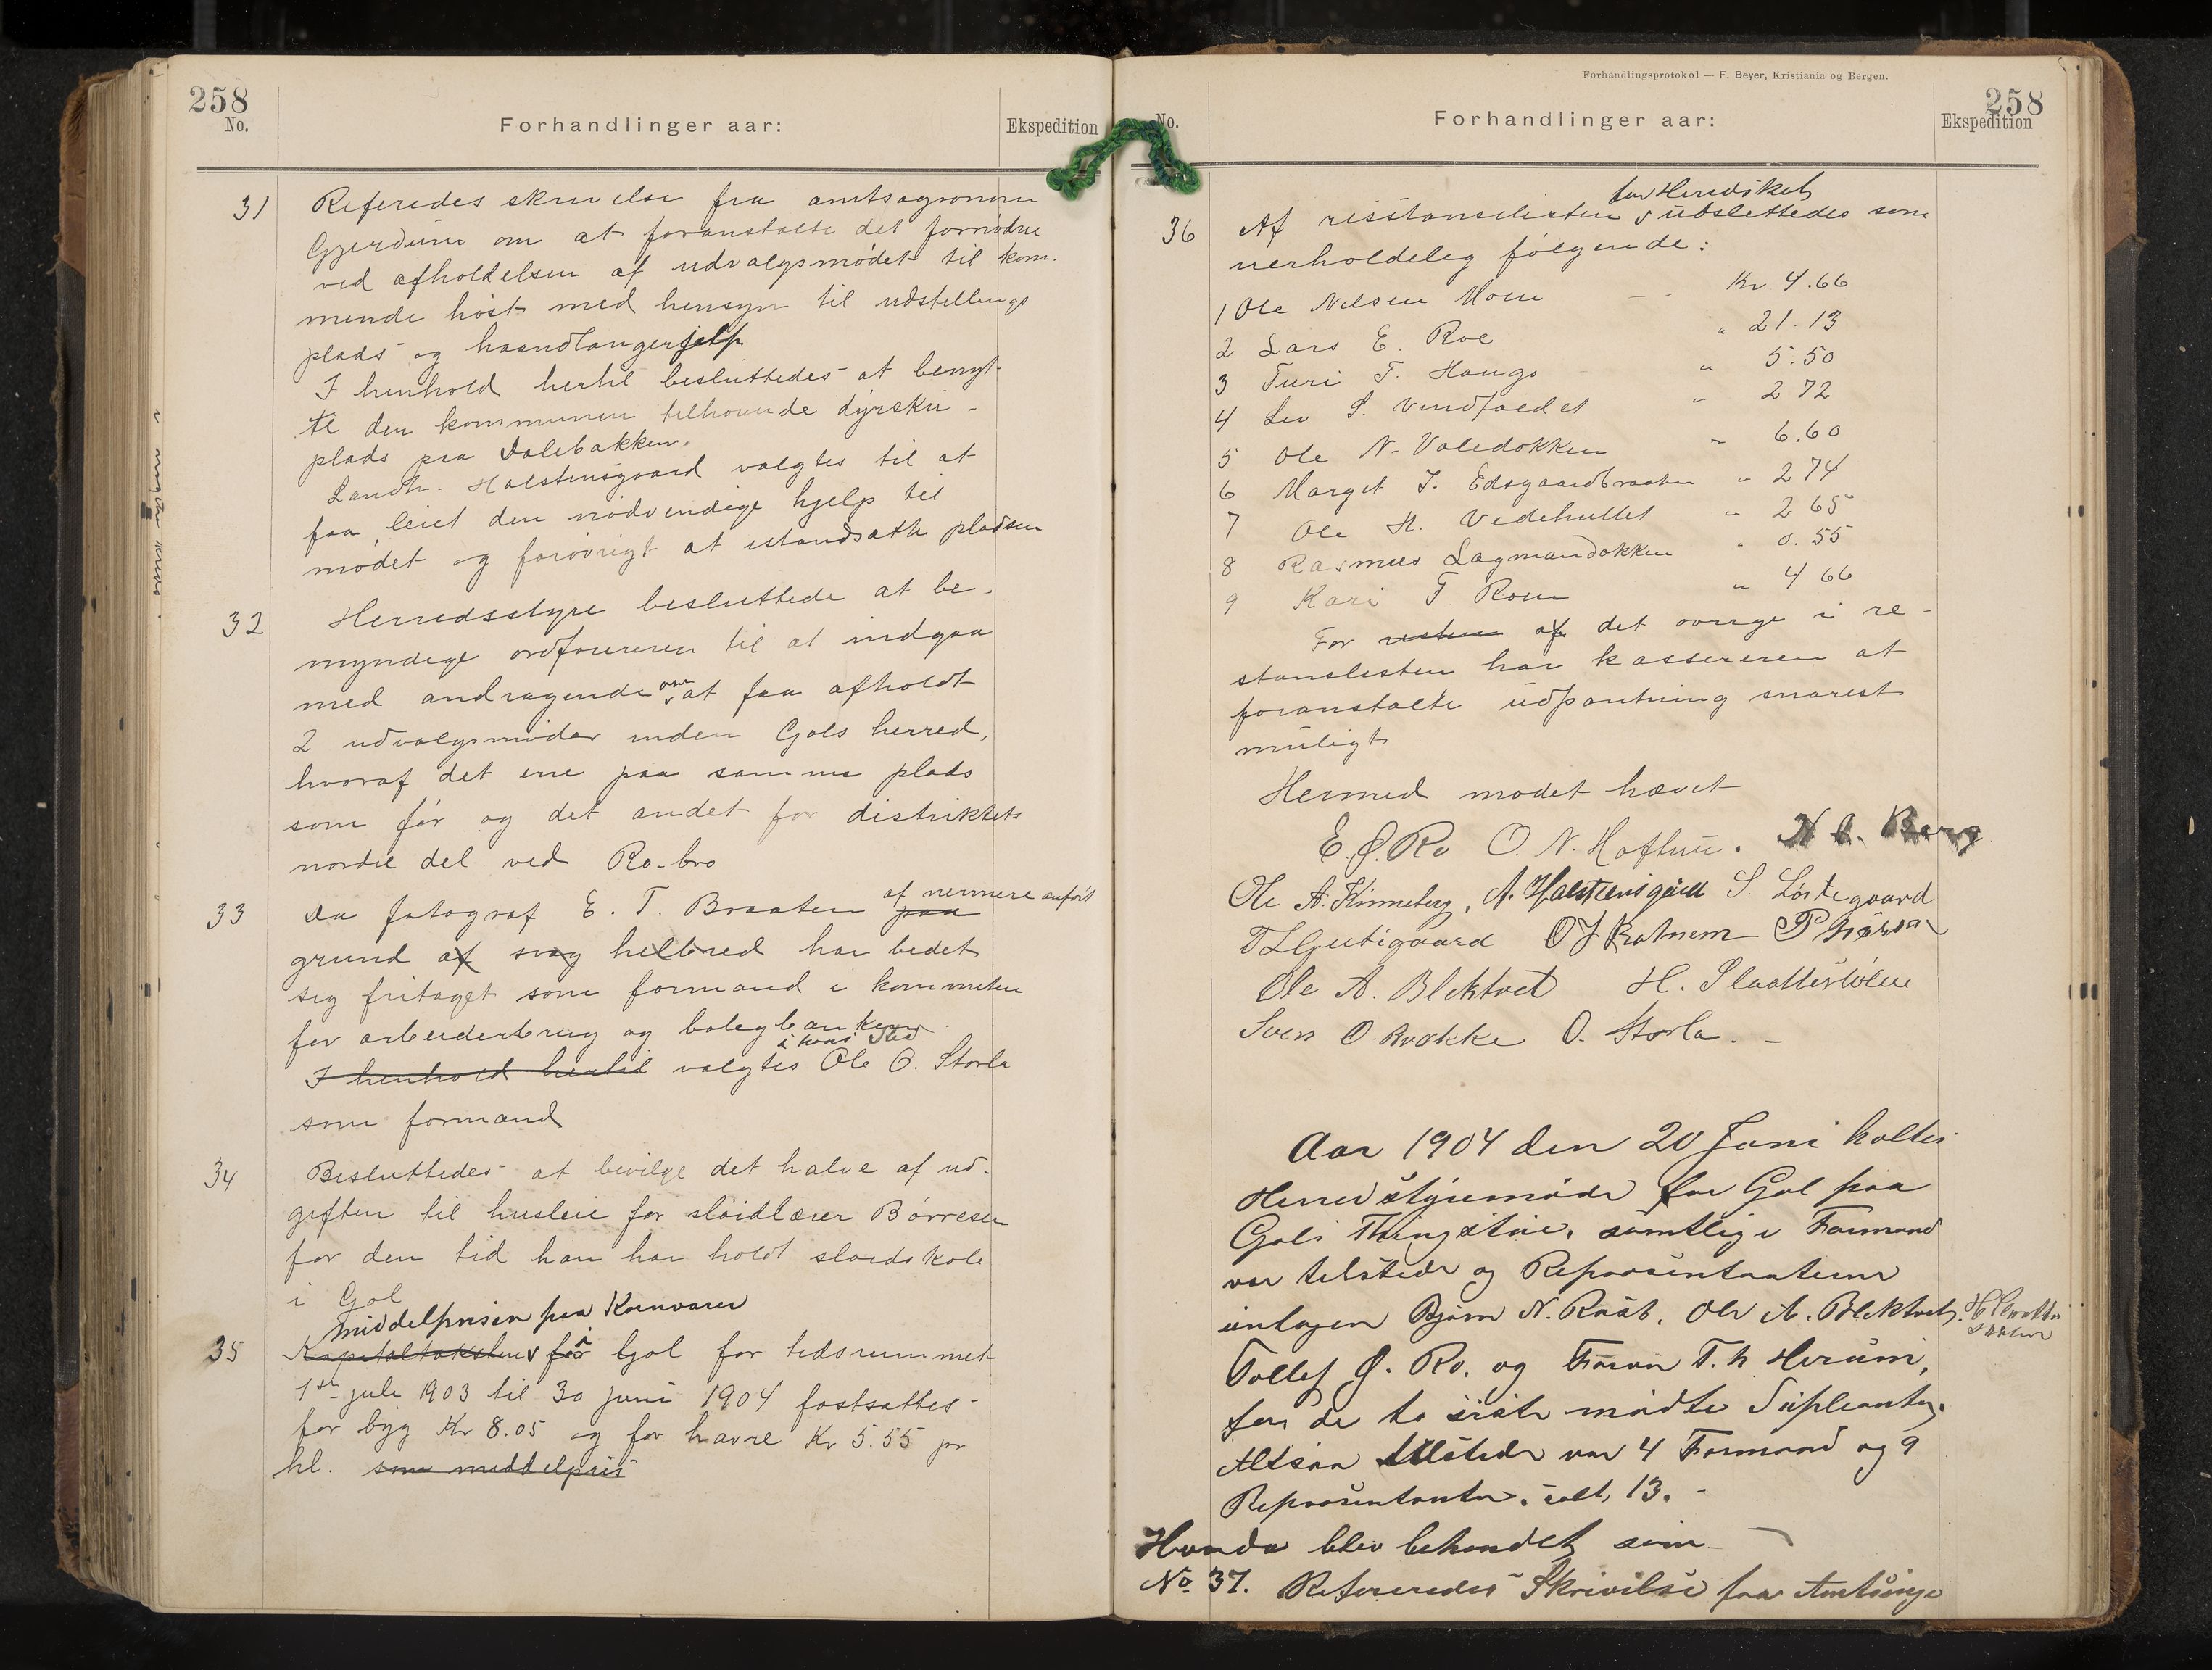 258
No.
Forhandlinger aar:
Ekspedition
31 Referedes skrivelse fra amtsagronom
Gjerdum om at foranstalte det fornødne
ved afholdelsen af udvalgsmødet til kom-
mende høst med hensyn til udstillings
plads og haandlangerhjelp
I henhold hertil besluttedes at benyt-
te den kommunen tilhørende dyrsku-
plads paa Dalebakken.
Landh. Halstensgaard valgtes til at
faa leiet den nødvendige hjelp til
mødet og forøvrigt at istandsætte pladsen
32 Herredsstyre besluttede at be-
myndige ordføreren til at indgaa
med andragende om at faa afholdt
2 udvalgsmøder inden Gols herred,
hvoraf det ene paa samme plads
som før og det andet for distriktets
nordre del ved Ro-bro
33 Da fotograf E. T. Braaten paa af nermere anført
grund af svag helbred har bedet
sig fritaget som formand i kommiteen
for arbeiderbrug og boligbanken.
I henhold hertil valgtes i hans sted Ole O. Storla
som formand
34 Besluttedes at bevilge det halve af ud-
giften til husleie for sløidlærer Børresen
for den tid han har holdt sløidskole
i Gol
Middelprisen paa Kornvarer
35 Kapitaltaksten for i Gol for tidsrummet
1ste juli 1903 til 30 juni 1904 fastsattes
for byg Kr 8.05 og for havre Kr 5.55 pr
hl. som middelpris
Forhandlingsprotokol — F. Beyer, Kristiania og Bergen.
258
No.
Forhandlinger aar:
Ekspedition
for Herredskat
36 Af restanselisten udslettedes som
uerholdelig følgende:
1 Ole Nilsen Moen Kr 4.66
2 Lars E. Roe " 21.13
3 Turi T. Haugo " 5.50
4 Liv S. Vindfaldet " 2 72
5 Ole N. Valedokken " 6.60
6 Margit J. Edsgaardbraaten " 2 74
7 Ole H. Vedehullet " 2 65
8 Rasmus Lagmandokken " 0.55
9 Kari T Roen " 4 66
For resten af det øvrige i re-
stanslisten har kassereren at
foranstalte udpantning snarest
muligt
Hermed mødet hævet
E. O. Ro O. N. Hafthun. N O. Berg
Ole A. Kinneberg, A. Halstensgård S. Løstegaard
T L Gutigaard O J Rotnem P Thorson
Ole A. Blektvet H. Slaattestølen
Sven O. Brække O. Storla.
Aar 1904 den 20 Juni holtes
Herredstyremøde for Gol paa
Gols Thingstue, samtlige Formænd
var tilstede og Repræsentanterne
untagen Bjørn N. Raab, Ole A. Blektvet, H. Slaatte
støen
Tollef O. Ro. og T. h Herum,
for de to siste mødte Supleanter.
Altsaa tilstede var 4 Formænd og 9
Repræsentanter. ialt, 13. -
Hvorda blev behandlet som
No. 37. Refereredes Skrivelse fra Amtsinge